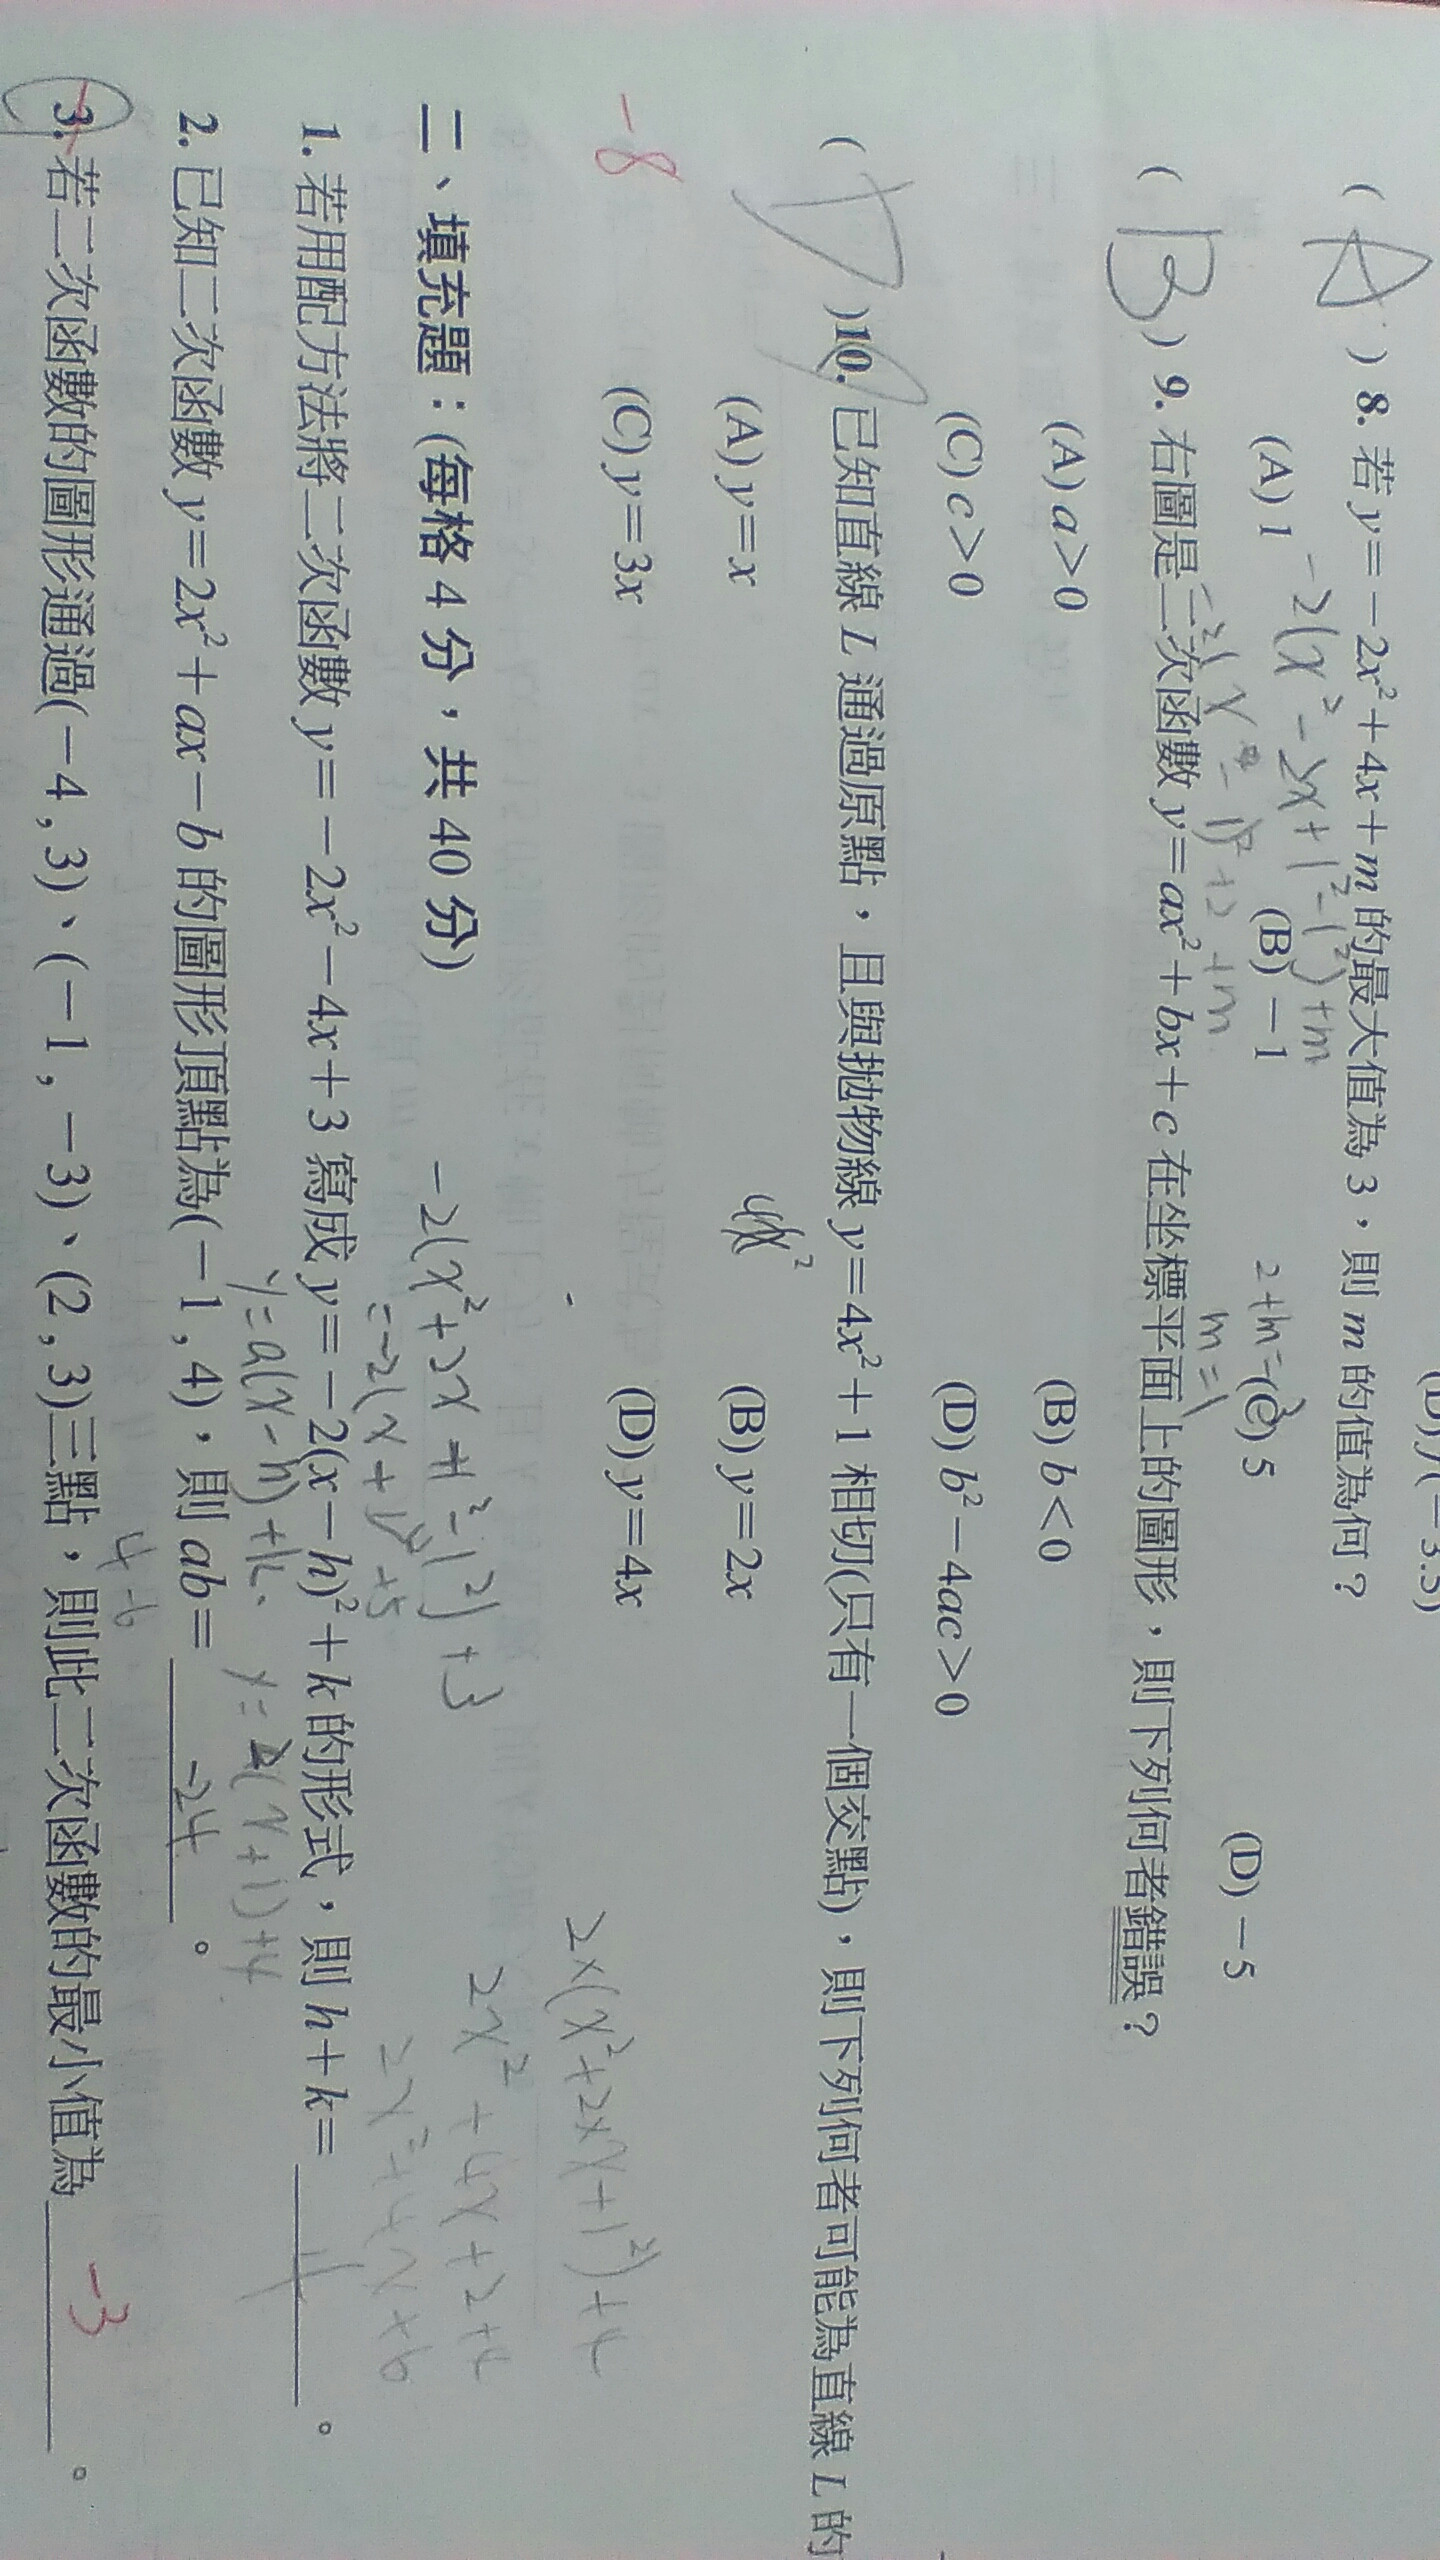 ( A ) 8. 若 y＝－2x²＋4x＋m 的最大值為 3，則 m 的值為何？
-2(x²-2x+1²-1²)+m
(A) 1 (B) －1 (C) 5 (D) －5
2+m=3
-2(x-1)²+2+m
m=1
( B ) 9. 右圖是二次函數 y＝ax²＋bx＋c 在坐標平面上的圖形，則下列何者錯誤？
(A) a＞0 (B) b＜0
(C) c＞0 (D) b²－4ac＞0
( D )10. 已知直線 L 通過原點，且與拋物線 y＝4x²＋1 相切(只有一個交點)，則下列何者可能為直線 L 的
(A) y＝x (B) y＝2x
(C) y＝3x (D) y＝4x
-8
二、填充題：(每格 4 分，共 40 分)
-2(x²+2x+1²-1²)+3
=-2(x+1)²+5
2x²+4x+2+4
2x²+4x+6
1. 若用配方法將二次函數 y＝－2x²－4x＋3 寫成 y＝－2(x－h)²＋k 的形式，則 h＋k＝ 4 。
y=a(x-h)+k
y=2(x+1)+4
2. 已知二次函數 y＝2x²＋ax－b 的圖形頂點為(－1 , 4)，則 ab＝ -24 。
4 -6
3. 若二次函數的圖形通過(－4 , 3)、(－1 , －3)、(2 , 3)三點，則此二次函數的最小值為 -3 。